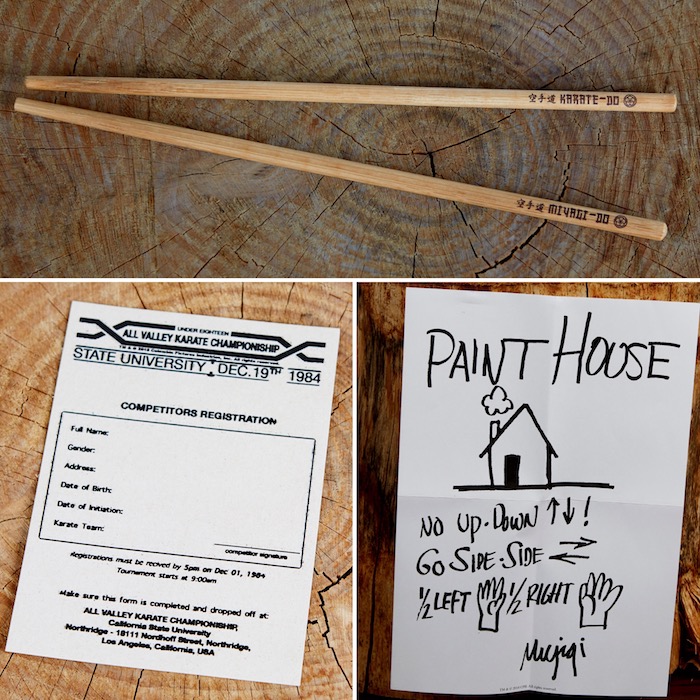 空手道 KARATE-DO
空手道 MIYAGI-DO
UNDER EIGHTEEN
ALL VALLEY KARATE CHAMPIONISHIP
TM & © 2018 Columbia Pictures Industries, Inc. All rights reserved.
STATE UNIVERSITY, DEC. 19TH 1984
COMPETITORS REGISTRATION
Full Name:
Gender:
Address:
Date of Birth:
Date of Initiation:
Karate Team:
competitor signeture
Registrations must be recived by 5pm on Dec 01, 1984
Tournament starts at 9:00am
Make sure this form is completed and dropped off at:
ALL VALLEY KARATE CHAMPIONISHIP,
California State University
Northridge - 18111 Nordhoff Street, Northridge,
Los Angeles, California, USA
PAINT HOUSE
NO UP-DOWN ↑↓!
GO SIDE-SIDE
1/2 LEFT 1/2 RIGHT